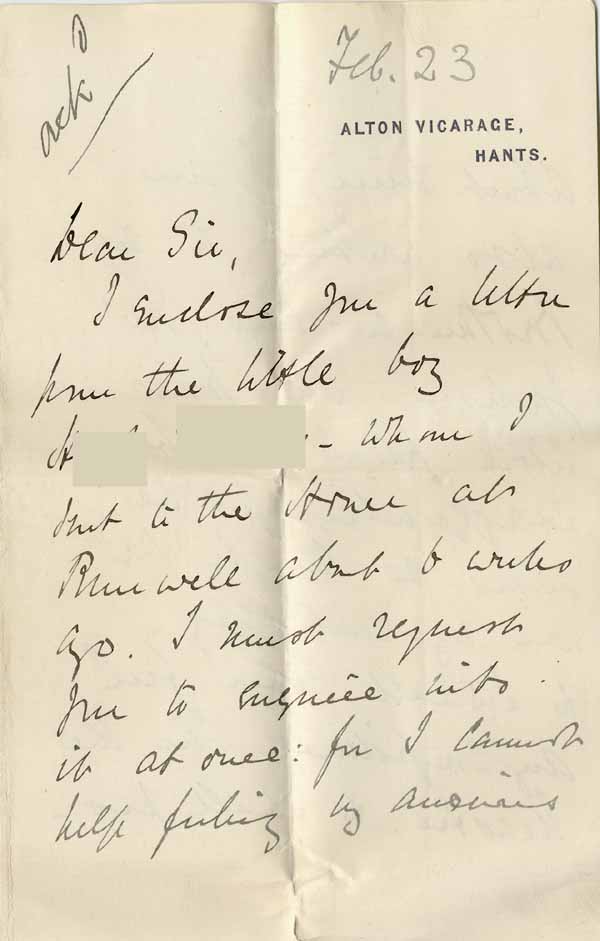 ack'd
Feb. 23
ALTON VICARAGE,
HANTS.
Dear Sir,
I enclose you a letter
from the little boy
H - whom I
sent to the Home at
well about 6 weeks
ago. I must request
you to enquire into
it at once: for I cannot
help feeling v̲y anxious